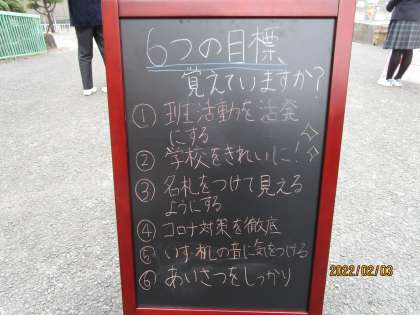 6つの目標
覚えていますか?
① 班活動を活発
にする
② 学校をきれいに!
③ 名札をつけて見える
ようにする
④ コロナ対策を徹底
⑤ いす・机の音に気をつける
⑥ あいさつをしっかり
2022/02/03